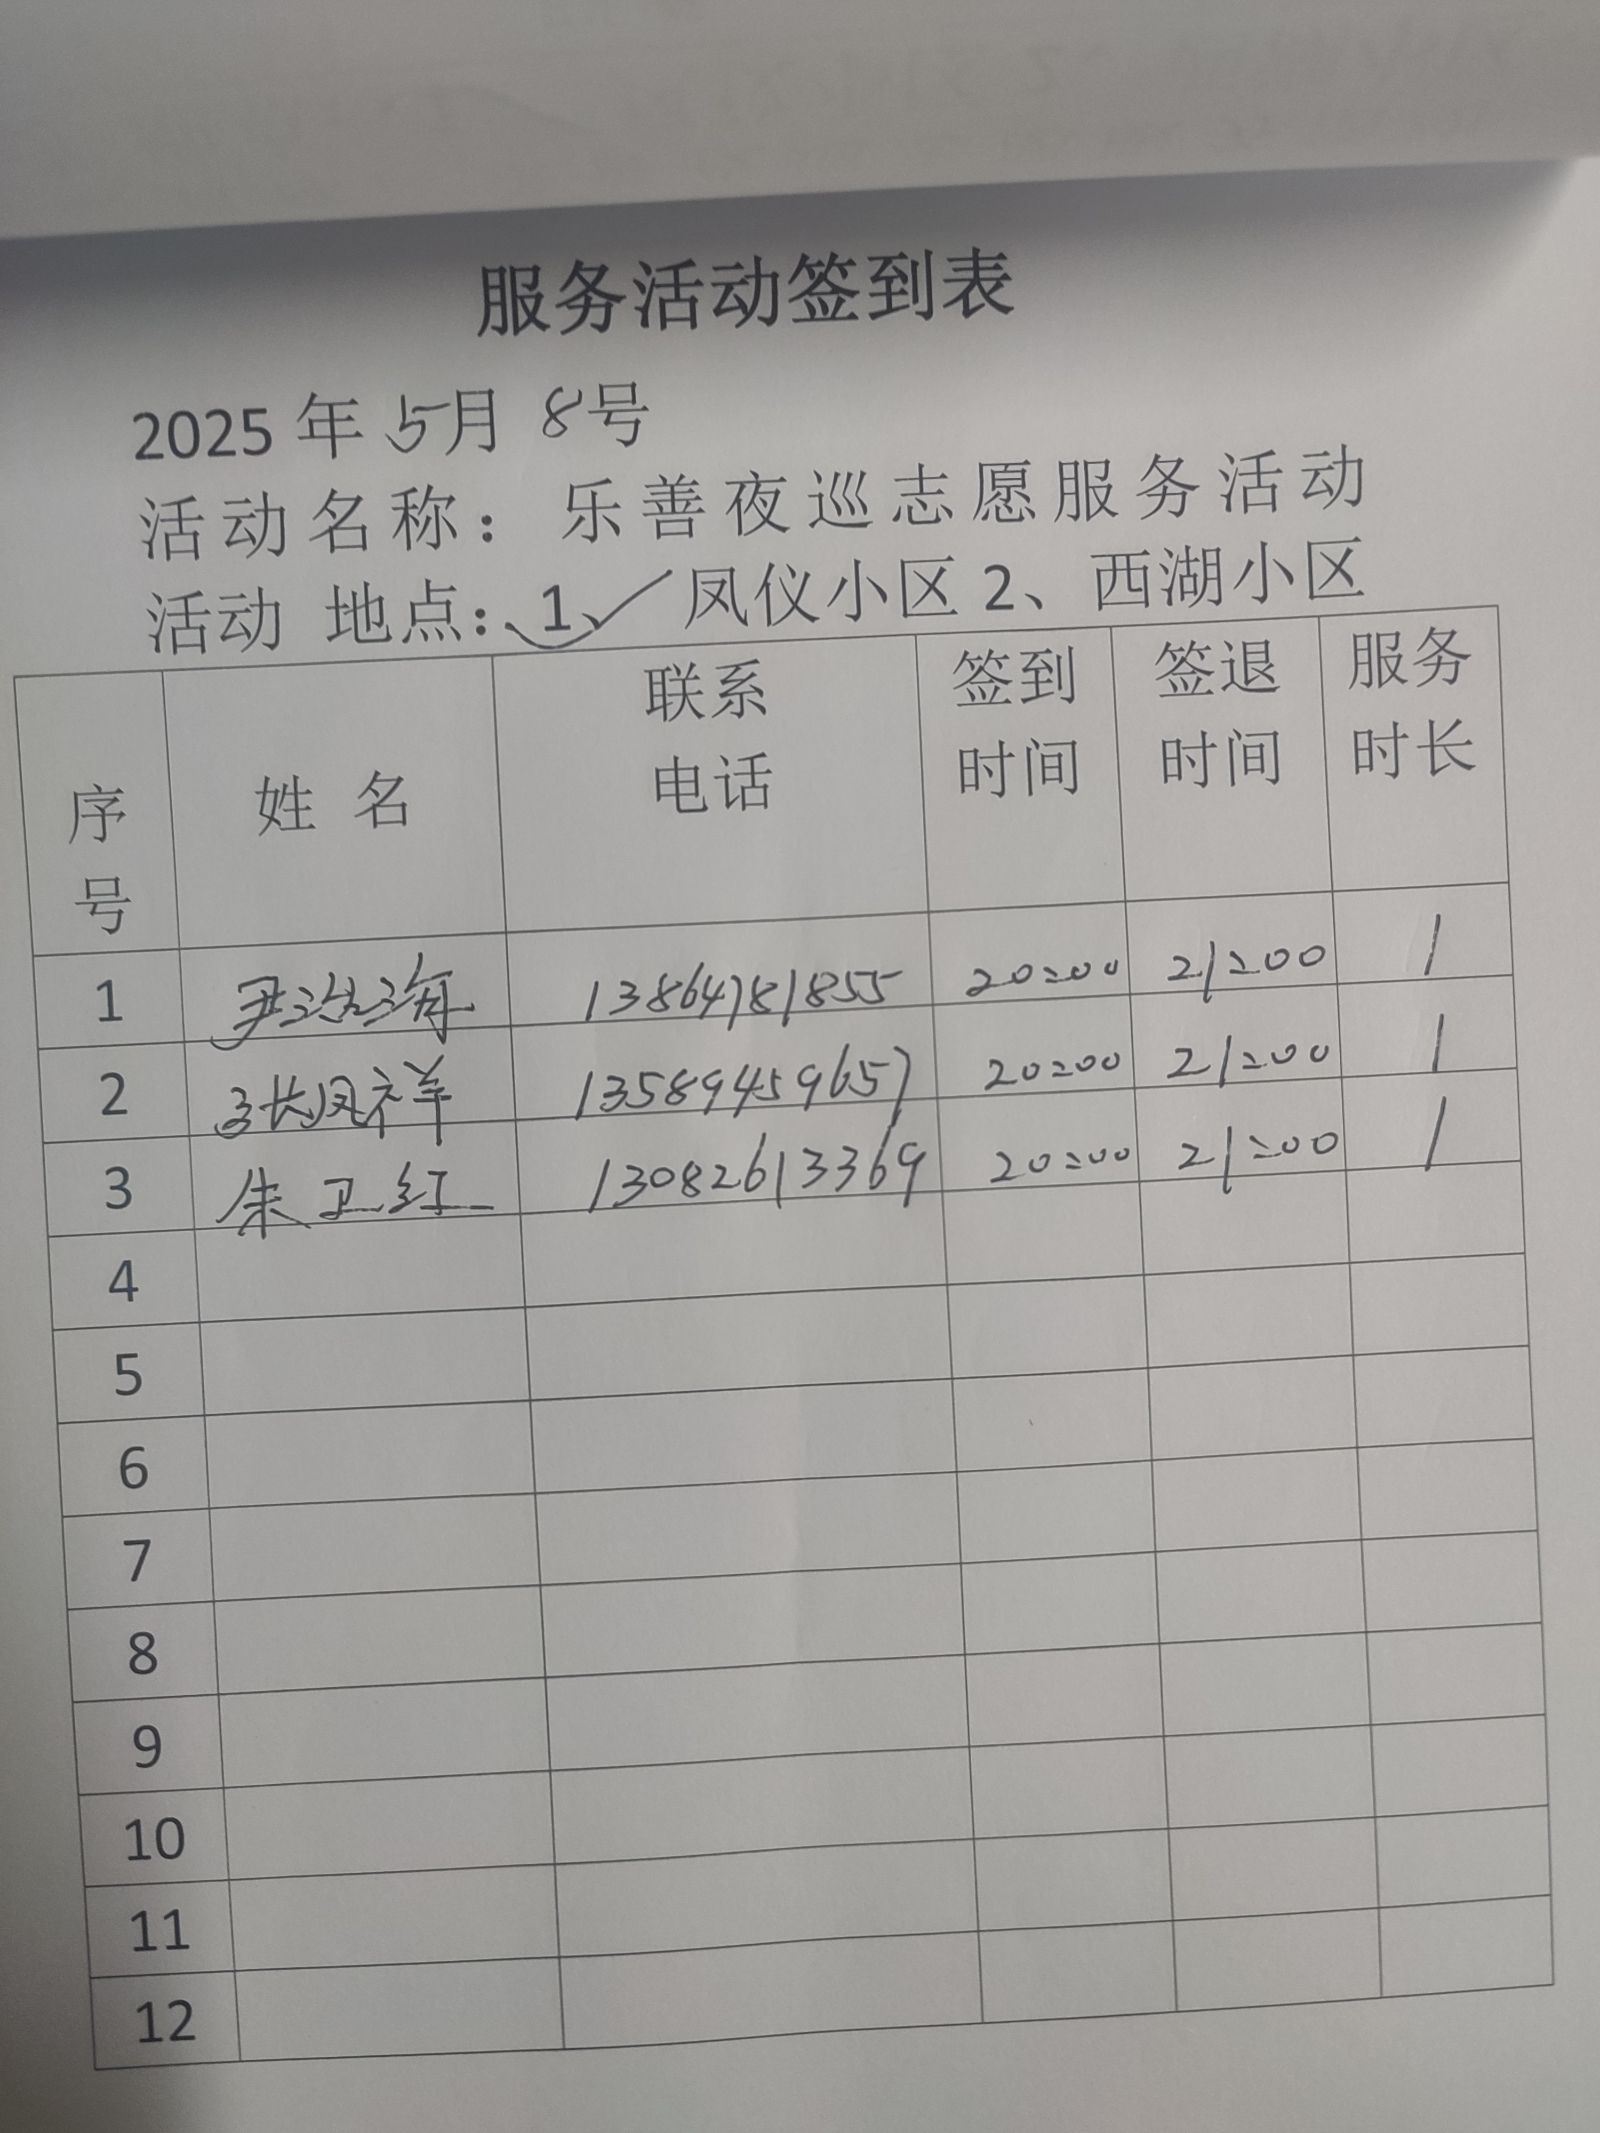 服务活动签到表
2025 年 5月 8号
活动名称：乐善夜巡志愿服务活动
活动 地点：1、✓ 凤仪小区 2、西湖小区
序号 姓 名 联系电话 签到时间 签退时间 服务时长
1 尹治海 13864781855 20:00 21:00 1
2 张凤祥 13589459657 20:00 21:00 1
3 朱卫红 13082613369 20:00 21:00 1
4
5
6
7
8
9
10
11
12